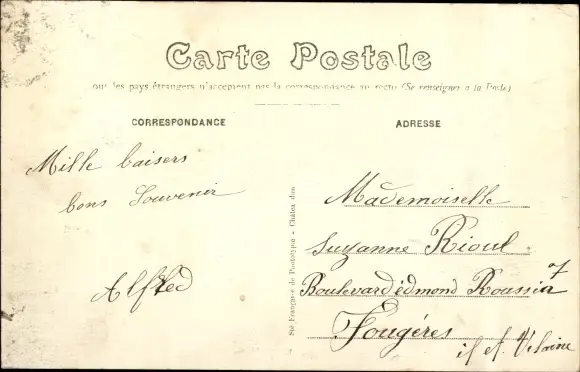 Carte Postale
ous les pays étrangers n'acceptent pas la correspondance au recto (Se renseigner à la Poste)
CORRESPONDANCE
Mille baisers
bons Souvenir
Alfred
Sté Française de Phototypie - Châteaudun
ADRESSE
Mademoiselle
Suzanne Rioul
Boulevard édmond Roussin 7
Fougéres
il et Vilaine